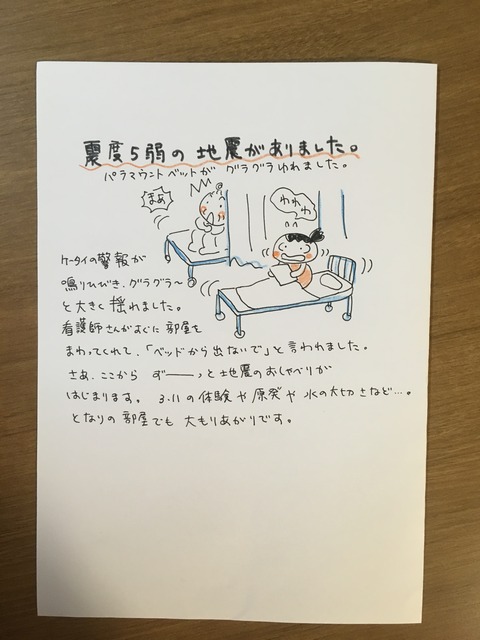 震度5弱の地震がありました。
パラマウントベットが グラグラゆれました。
まあ
わわわ
ケータイの警報が
鳴りひびき、グラグラ〜
と大きく揺れました。
看護師さんがすぐに部屋を
まわってくれて、「ベッドから出ないで」と言われました。
さあ、ここから ずーーっと地震のおしゃべりが
はじまります。 3.11の体験や原発や水の大切さなど…。
となりの部屋でも 大もりあがりです。